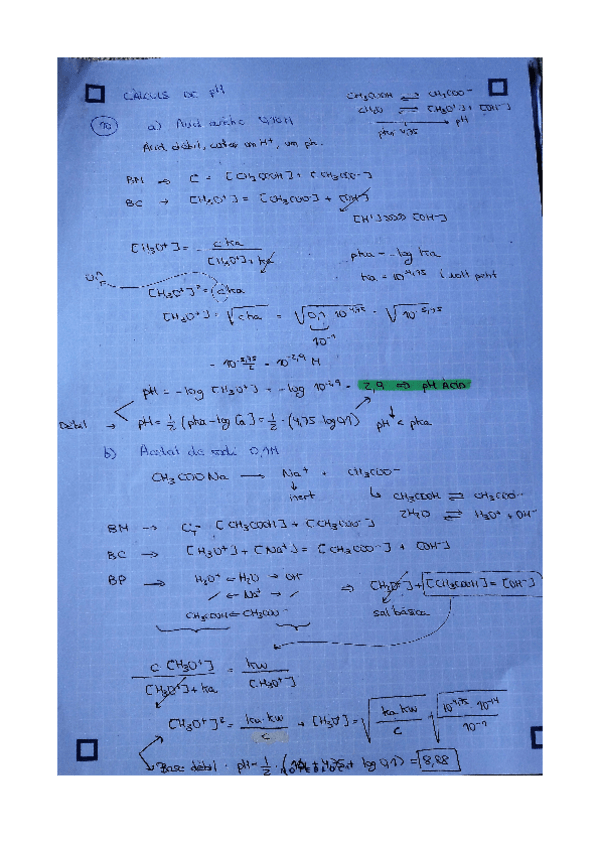 CÀLCULS DE pH
CH3COOH ⇌ CH3COO-
CH3O ⇌ [CH3O+] + [OH-]
pka 4,75 pH
10 a) Àcid acètic 0,10M
Àcid dèbil, un ph.
BM → C = [CH3COOH] + [CH3COO-]
BC → [H3O+] = [CH3COO-] + [OH-]
[H+] >>>> [OH-]
[H3O+] = c ka / [H3O+] + ka
pka = -log ka
ka = 10^-4,75 i molt petit
[H3O+]² = c ka
[H3O+] = √cka = √0,1 · 10^-4,75 = √10^-5,75
10^-1
= 10^-5,75/2 = 10^-2,9 M
pH = -log [H3O+] = -log 10^-2,9 = 2,9 ⇒ pH Àcid
Dèbil → pH = 1/2 (pka - log Ca) = 1/2 · (4,75 - log 0,1) pH < pka
b) Acetat de sodi 0,1M
CH3COONa → Na+ + CH3COO-
inert
↳ CH3COOH ⇌ CH3COO-
2H2O ⇌ H3O+ + OH-
BM → C = [CH3COOH] + [CH3COO-]
BC → [H3O+] + [Na+] = [CH3COO-] + [OH-]
BP → H3O+ ← H2O → OH-
/ ← Na+ → /
CH3COOH ← CH3COO-
⇒ [H3O+] + [CH3COOH] = [OH-]
sal bàsica
c [H3O+] / [H3O+] + ka = kw / [H3O+]
[H3O+]² = ka · kw / c → [H3O+] = √ka · kw / c = √10^-4,75 · 10^-14 / 10^-1
Base dèbil · pH = 1/2 · (14 + 4,75 + log 0,1) = 8,88